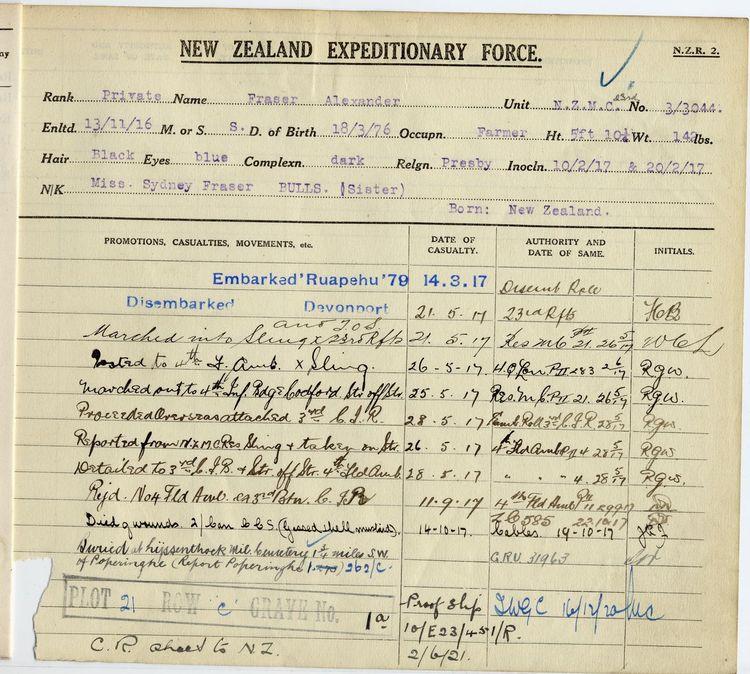 NEW ZEALAND EXPEDITIONARY FORCE.
N.Z.R. 2.
Rank Private Name Fraser Alexander Unit N.Z.M.C. 23rd No. 3/3044.
Enltd. 13/11/16 M. or S. S. D. of Birth 18/3/76 Occupn. Farmer Ht. 5ft 10½ Wt. 142 lbs.
Hair Black Eyes blue Complexn. dark Relgn. Presby Inocln. 10/2/17 & 20/2/17
N/K Miss. Sydney Fraser BULLS. (Sister)
Born: New Zealand.
PROMOTIONS, CASUALTIES, MOVEMENTS, etc. DATE OF CASUALTY. AUTHORITY AND DATE OF SAME. INITIALS.
Embarked 'Ruapehu' '79 14.3.17
Disemb Roll
Disembarked Devonport 21.5.17 23rd Rfts HB
and T.O.S.
Marched into Sling x 23rd Rfts 21.5.17 Res M C PII 21. 26 5/17
Posted to 4th F. Amb. x Sling. 26-5-17 PII 283 Rgw.
Marched out to 4th Inf. Bdge Codford Str. off Str. 25.5.17 Res. M.C. PII 21. 26 5/17 Rgw.
Proceeded Overseas attached 3rd C.J.R. 28.5.17 Emb. Roll 3rd C.J.R. 28 5/17 Rgw
Reported from NZMC Res Sling & taken on Str. 26.5.17 4 Fld Amb PII 4 28 5/17 Rgw
Detailed to 3rd C.I.B. & Str. off Str. 4th Fld Amb. 28.5.17 " " " 4. 28 5/17 Rgw.
Rejd. No 4 Fld Amb. 3rd Btn. C.I.R 11.9.17 4th Fld Amb PII
Died of wounds. 2/Can C C S (Gassed shell mustard). 14-10-17. 585 22/10/17
Cables. 19-10-17
Buried at Lijssenthoek Mil. Cemetery 1¾ miles S.W. G.R.U 31963
of Poperinghe (Report Poperinghe) 262/C.
PLOT 21 ROW "C" GRAVE No. 1a
Proof Slip I.W.G.C 16/12/20
10/E23/451/R.
C.R. sheet to N.Z. 2/6/21.